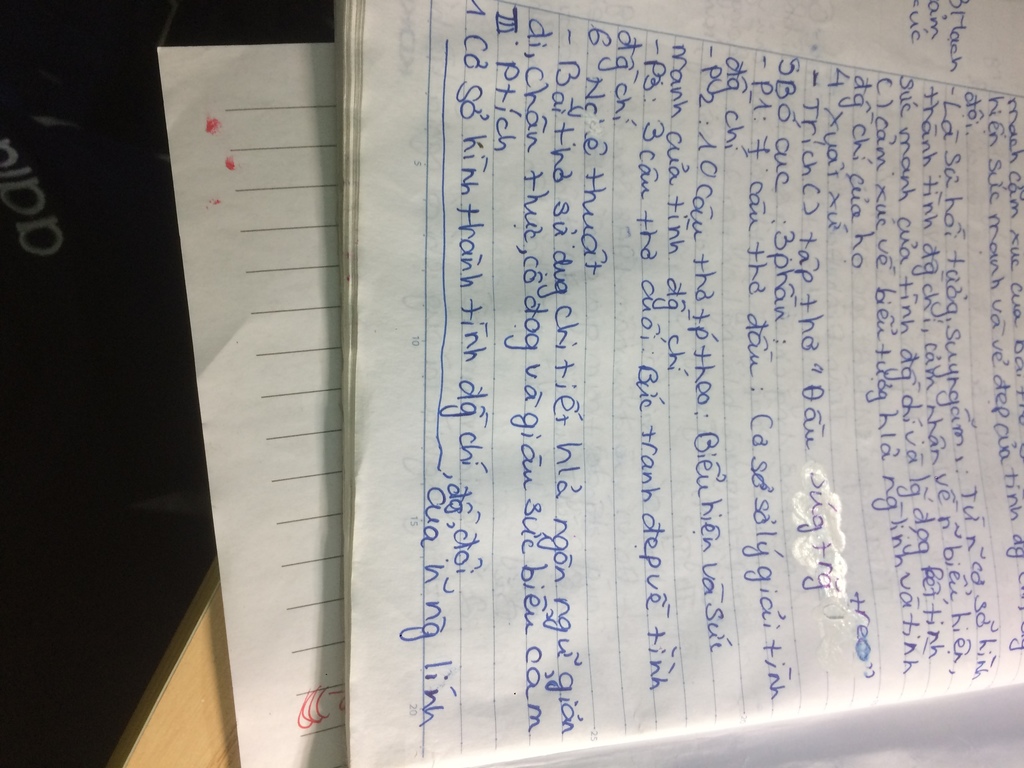 3 Mạch cảm xúc
mạch cảm xúc của bài thơ
hiện sức mạnh và vẻ đẹp của tình đg
đội.
- Là sự hồi tưởng, suy ngẫm: Từ ~ cơ sở hình
thành tình đg chí, cảm nhận về ~ biểu hiện,
sức mạnh của tình đg chí và lg đọg lại tình
() cảm xúc về biểu tượg h/ả ng lính và tình
đg chí của họ
4 xuất xứ
- Trích () tập thơ "Đầu súg trăg treo"
5 Bố cục: 3 phần:
- P1: 7 câu thơ đầu: Cơ sở lý giải tình
đg chí
- P2: 10 câu thơ tº theo: Biểu hiện và sức
mạnh của tình đg chí
- P3: 3 câu thơ cuối: Bức tranh đẹp về tình
đg chí
6 Nghệ thuật
- Bài thơ sử dụng chi tiết h/ả ngôn ngữ giản
dị, chân thực, cô đọg và giàu sức biểu cảm
III. Ptích
1 Cơ sở hình thành tình đg chí, đg đội
của n~ng lính